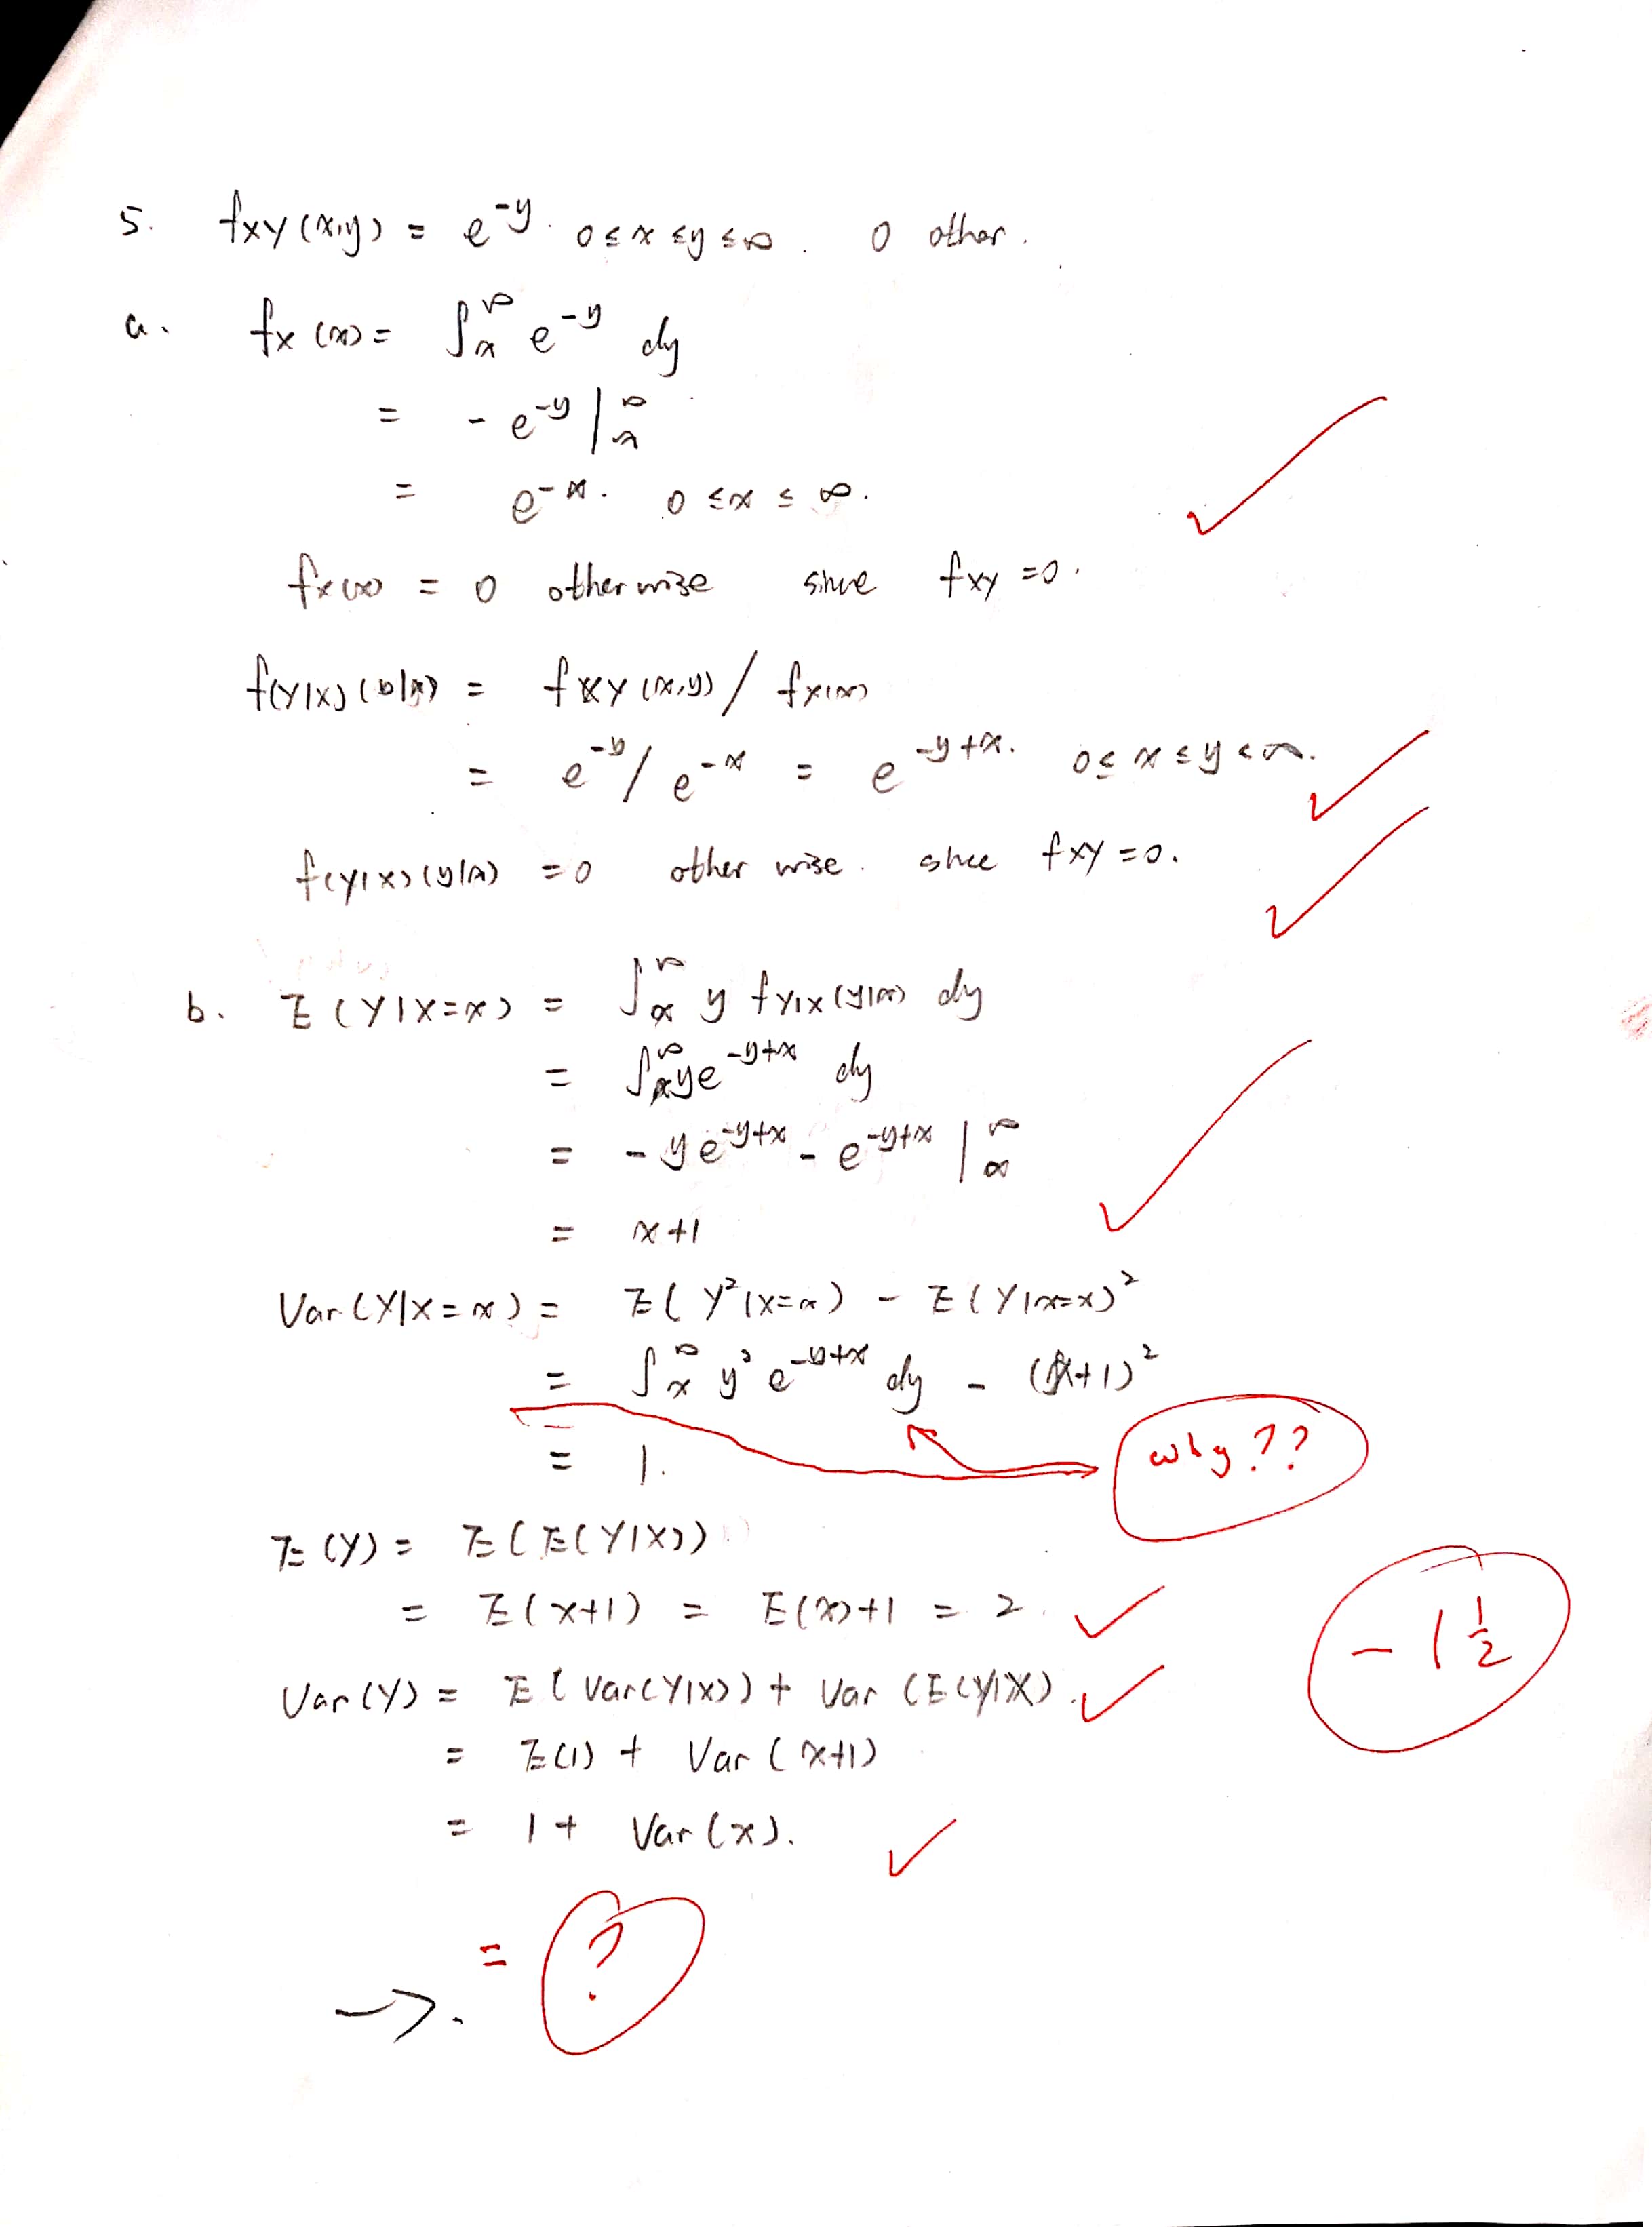 5. fxy(x,y) = e^{-y}. 0≤x≤y≤∞. 0 other.
a. fx(x) = ∫_x^∞ e^{-y} dy
= -e^{-y} |_x^∞
= e^{-x}. 0≤x≤∞.
fx(x) = 0 otherwise since fxy=0.
f(Y|X)(y|x) = fxy(x,y) / fx(x)
= e^{-y}/e^{-x} = e^{-y+x}. 0≤x≤y<∞.
f(Y|X)(y|x) = 0 otherwise. since fxy=0.
b. E(Y|X=x) = ∫_x^∞ y fY|X(y|x) dy
= ∫_x^∞ ye^{-y+x} dy
= -ye^{-y+x} - e^{-y+x} |_x^∞
= x+1
Var(Y|X=x) = E(Y²|X=x) - E(Y|X=x)²
= ∫_x^∞ y² e^{-y+x} dy - (x+1)²
why??
= 1.
E(Y) = E(E(Y|X))
= E(x+1) = E(x)+1 = 2.
-1 1/2
Var(Y) = E(Var(Y|X)) + Var(E(Y|X).
= E(1) + Var(x+1)
= 1 + Var(x).
= ?
→.